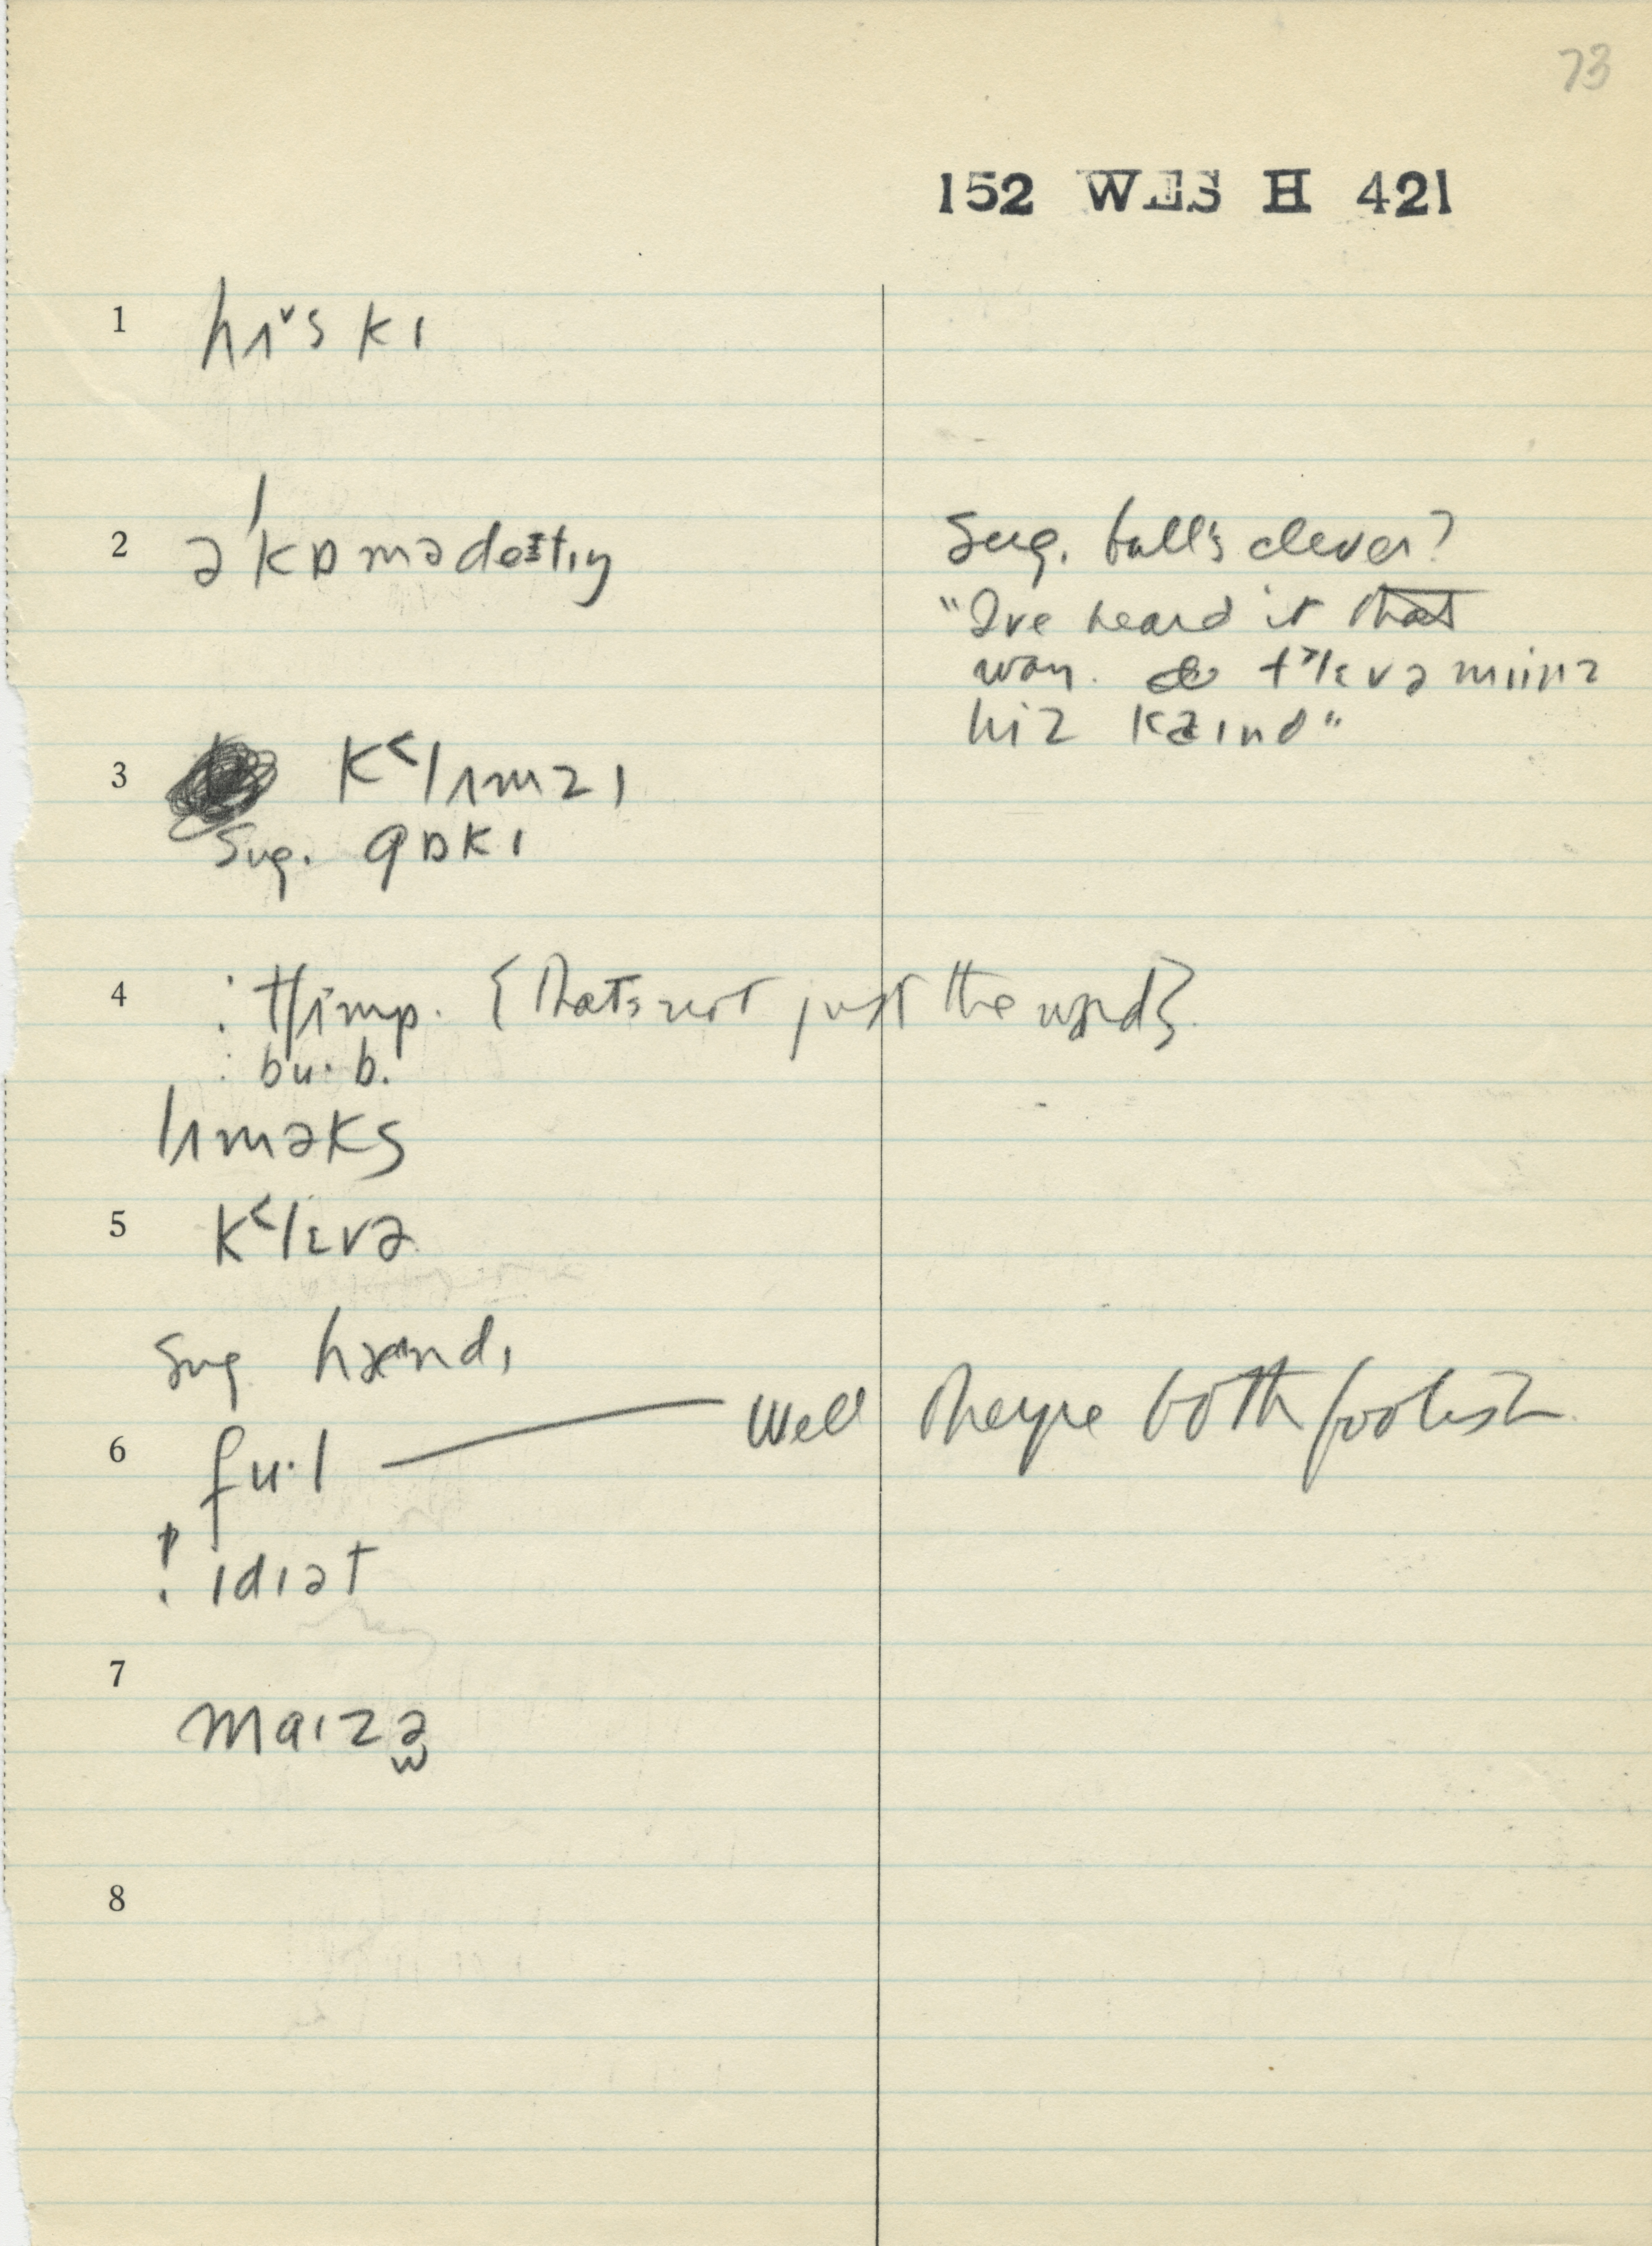 73
152 WES H 421
1 hɪˇs kɪ
2 əˈkɒmədeɪtɪŋ
Sug. bull's clever?
"I've heard it that
way. tʼlɛvə miinz
hiz kaɪnd"
3 k˂lɪmzɪ
Sug. gɒkɪ
4 : tʃɪmp. {that's not just the word}.
: bu·b.
lɪməks
5 k˂lɛvə
Sug hændɪ
6 fu·l — Well they're both foolish.
! ɪdɪət
7 maɪzə
8